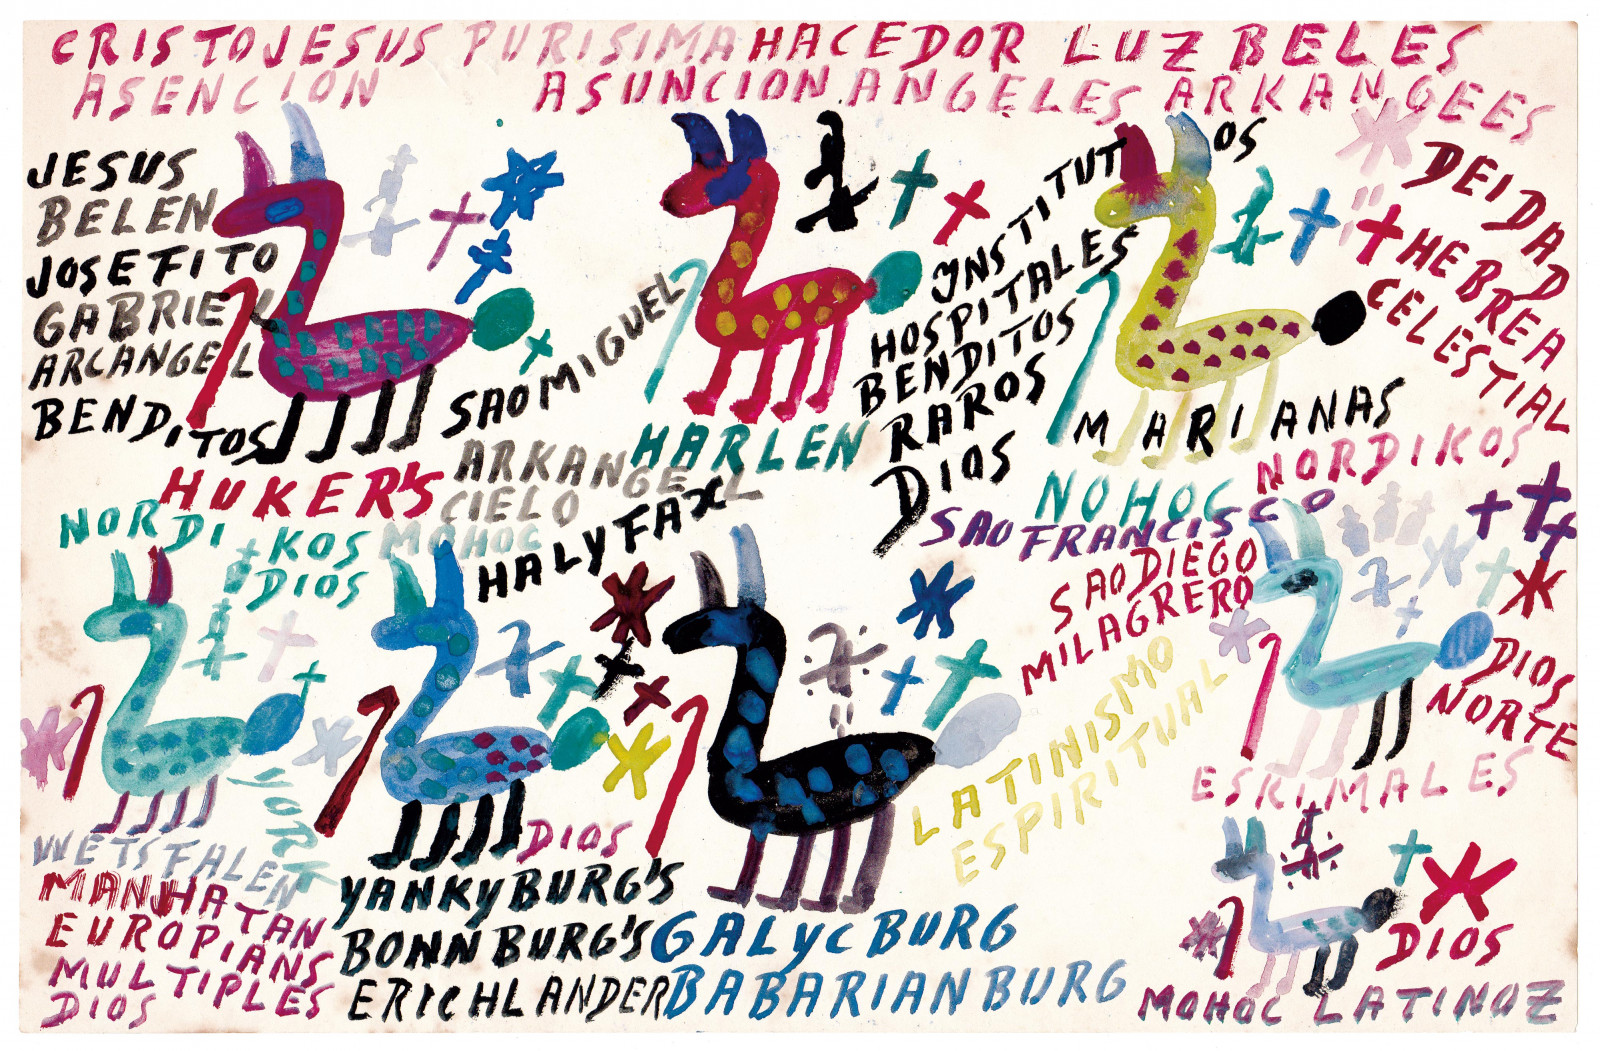 CRISTOJESUS PURISIMA HACEDOR LUZ BELES
ASENCION ASUNCION ANGELES ARKANGEES
JESUS
BELEN
JOSEFITO
GABRIEL
ARCANGEL
BENDITOS
SAO MIGUEL
INSTITUTOS
HOSPITALES
BENDITOS
RAROS
DIOS
DEIDAD
HEBREA
CELESTIAL
MARIANAS
HUKER'S
ARKANGEL
CIELO
HARLEN
HALYFAX
NORDIKOS
DIOS
MOHOC
NOHOC
NORDIKOS
SAO FRANCISCO
SAO DIEGO
MILAGRERO
LATINISMO
ESPIRITUAL
DIOS
NORTE
ESKIMALES
WETSFALEN
YORK
MANJHATAN
EUROPIANS
MULTIPLES
DIOS
DIOS
YANKYBURG'S
BONNBURG'S
ERICHLANDER
GALYCBURG
BABARIANBURG
DIOS
MOHOC LATINOZ